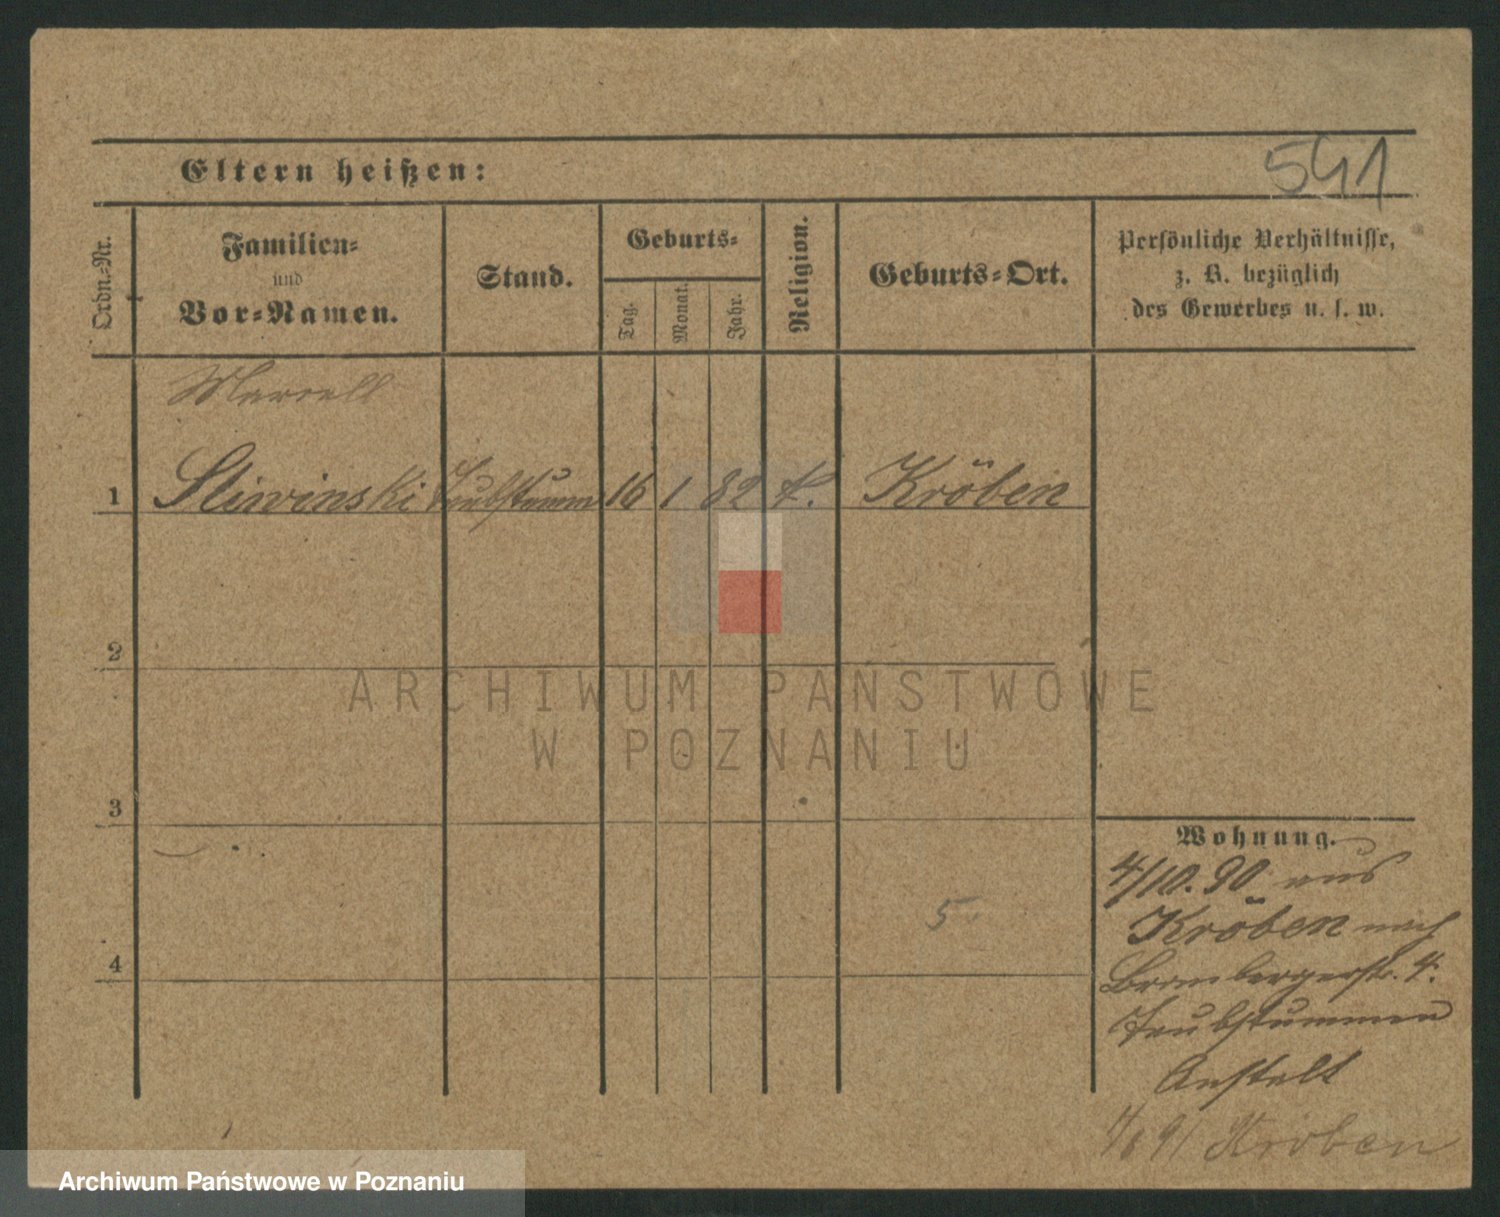 541
Eltern heißen:
Ordn.-Nr.
Familien-
und
Vor-Namen.
Stand.
Geburts-
Tag.
Monat.
Jahr.
Religion.
Geburts-Ort.
Persönliche Verhältnisse,
z. B. bezüglich
des Gewerbes u. s. w.
Marcell
1 Sliwinski Taubstumm 16 1 82 k. Kröben
2
ARCHIWUM PAŃSTWOWE
W POZNANIU
3
Wohnung.
4/10.90 aus
Kröben nach
Brombergerstr. 4.
Taubstummen
Anstalt
5.
4
91 Kröben
Archiwum Państwowe w Poznaniu